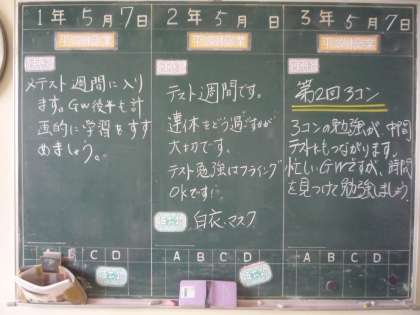 1年5月7日
×テスト週間に入り
ます。GW後半も計
画的に学習をすす
めましょう。
A B C D
2年5月7日
テスト週間です。
連休をどう過ごすかが
大切です。
テスト勉強はフライング
OKです!!
白衣、マスク
A B C D
3年5月7日
第2回3コン
3コンの勉強が、中間
テストにもつながります。
忙しいGWですが、時間
を見つけて勉強しましょう。
A B C D